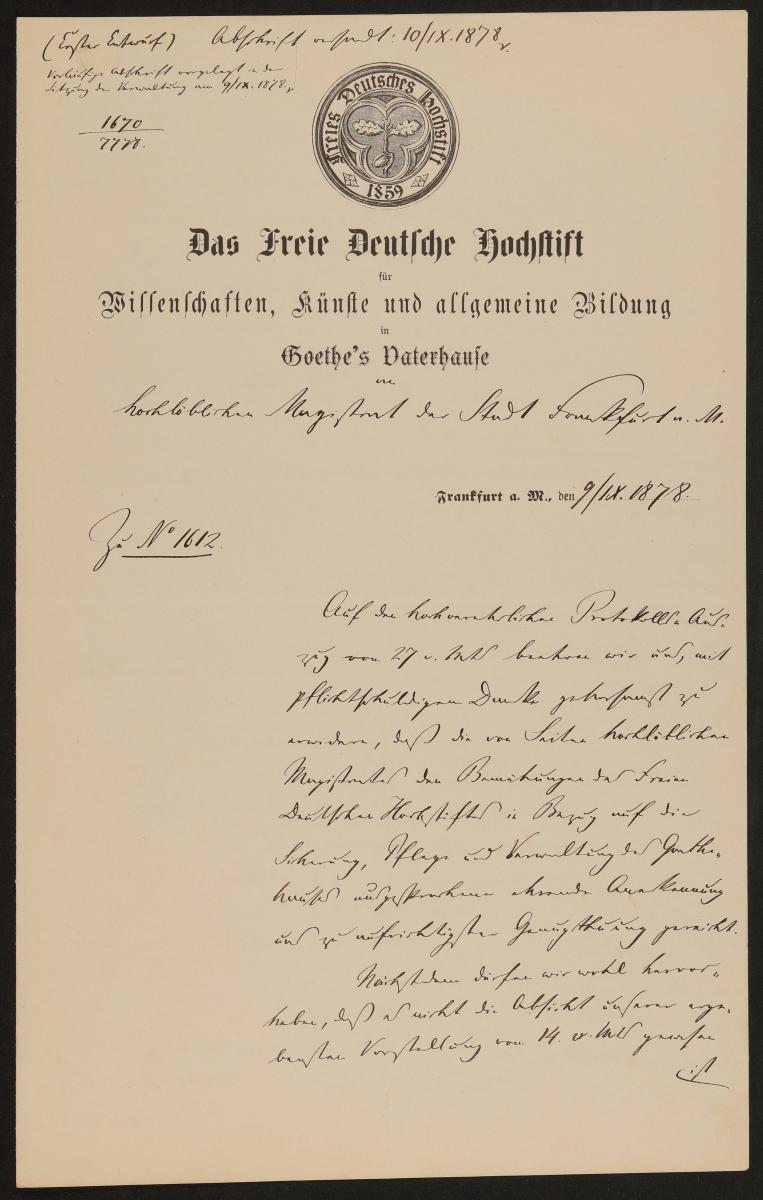 (Erster Entwurf) Abschrift versandt: 10/IX.1878.
Vorläufige Abschrift vorgelegt in der
Sitzung der Verwaltung am 9/IX.1878.
1670
7778.
Freies Deutsches Hochstift
1859
Das Freie Deutsche Hochstift
für
Wissenschaften, Künste und allgemeine Bildung
in
Goethe's Vaterhause
an
hochlöblichen Magistrat der Stadt Frankfurt a. M.
Frankfurt a. M., den 9/IX.1878.
Zu No 1612.
Auf den hochverehrlichen Protokolls-Aus-
zug vom 27 v. Mts beehren wir uns, mit
pflichtschuldigem Danke gehorsamst zu
erwidern, daß die von Seiten hochlöblichen
Magistrates den Bemühungen des Freien
Deutschen Hochstiftes in Bezug auf die
Sicherung, Pflege und Verwaltung des Goethe-
hauses ausgesprochene ehrende Anerkennung
uns zu aufrichtigster Genugthuung gereicht.
Nächstdem dürfen wir wohl hervor-
heben, daß es nicht die Absicht unserer erge-
bensten Vorstellung vom 14. v. Mts gewesen
ist